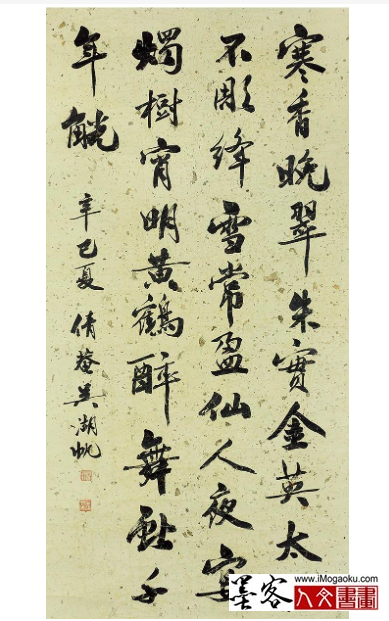 寒香晚翠朱實金英太
不彫絳雪常盈仙人夜宴
燭樹宵明黃鶴醉舞獻千
年觥
辛巳夏 倩菴吳湖帆
墨客
www.iMogaoku.com
人文書畫